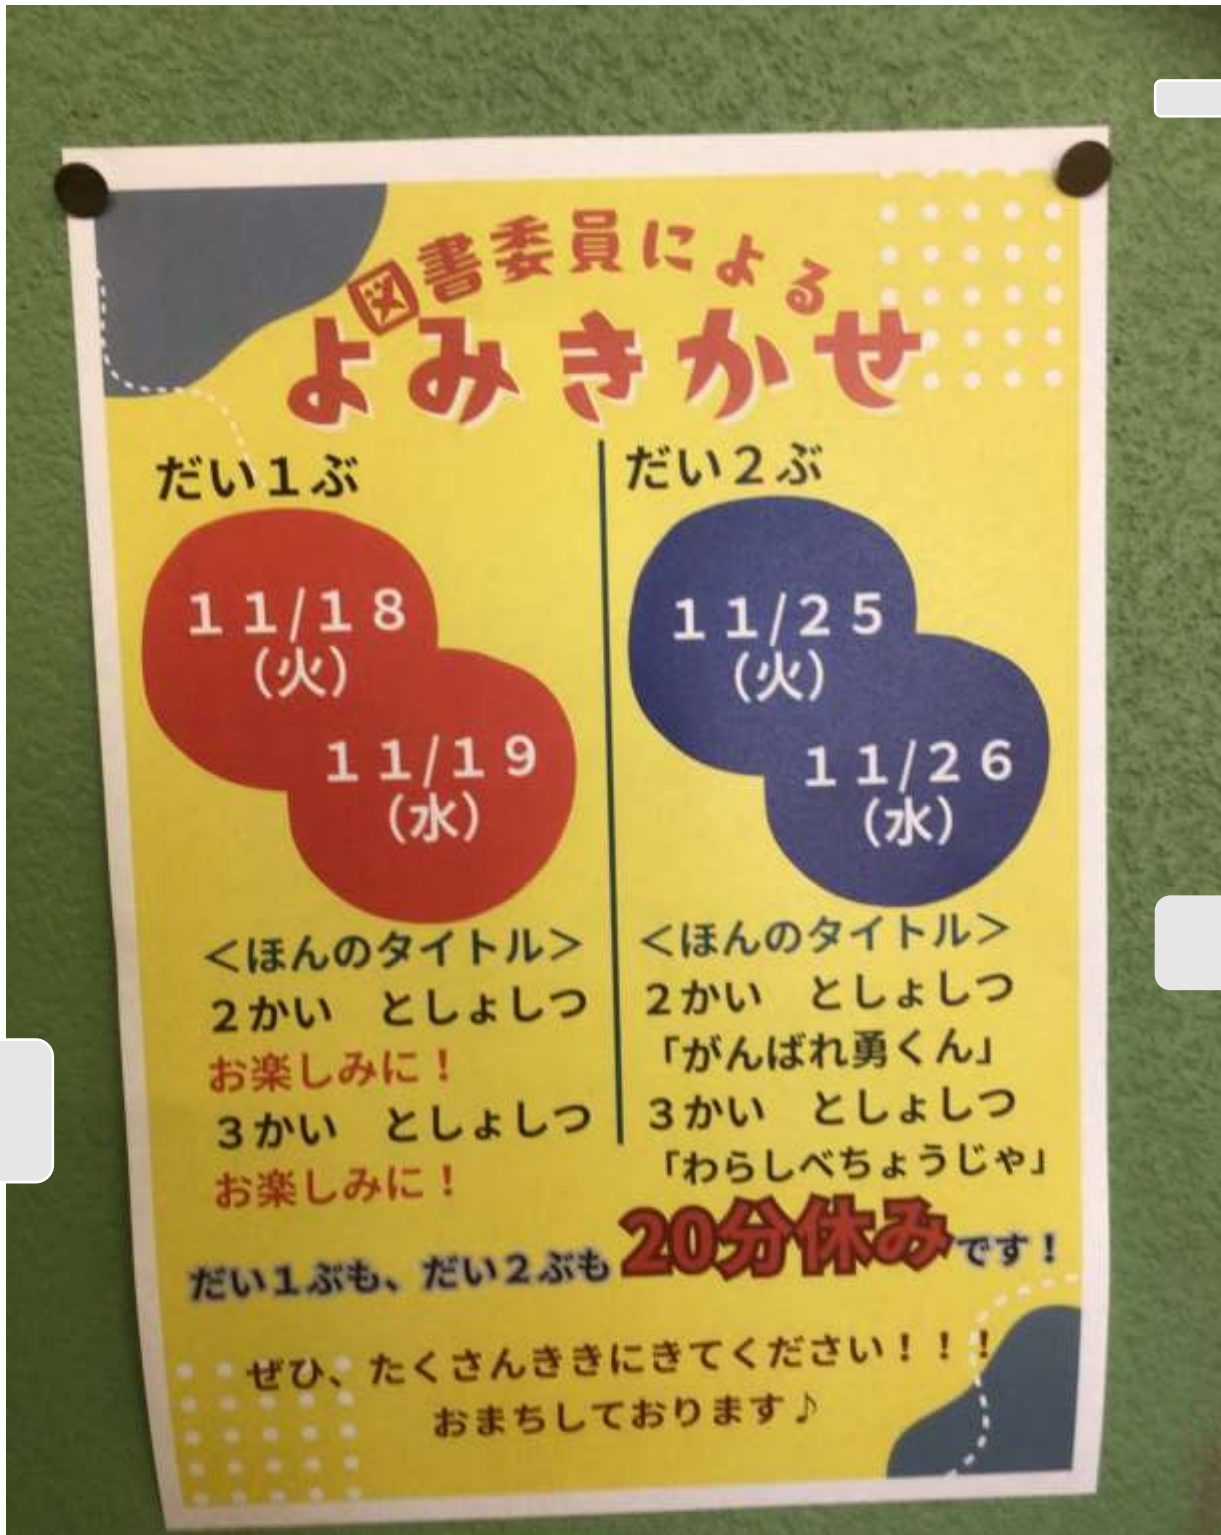 図書委員による
よみきかせ
だい１ぶ
１１/１８
（火）
１１/１９
（水）
＜ほんのタイトル＞
２かい　としょしつ
お楽しみに！
３かい　としょしつ
お楽しみに！
だい２ぶ
１１/２５
（火）
１１/２６
（水）
＜ほんのタイトル＞
２かい　としょしつ
「がんばれ勇くん」
３かい　としょしつ
「わらしべちょうじゃ」
だい１ぶも、だい２ぶも20分休みです！
ぜひ、たくさんききにきてください！！！
おまちしております♪